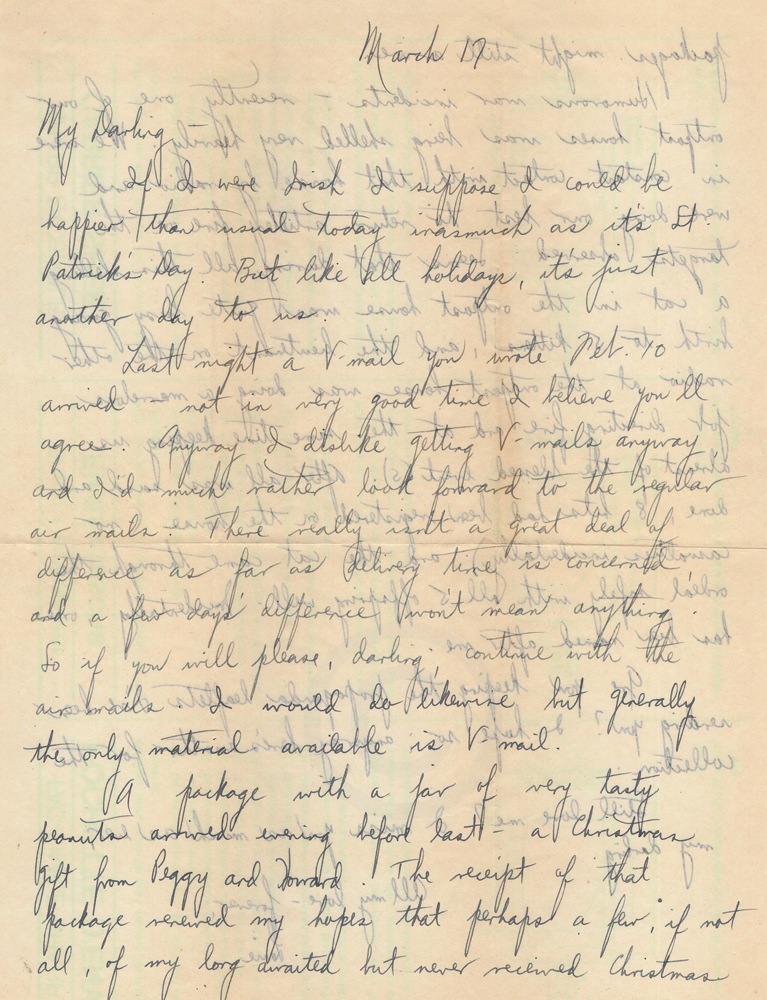 March 17
My Darling -
If I were Irish I suppose I could be
happier than usual today inasmuch as it's St.
Patrick's Day. But like all holidays, it's just
another day to us.
Last night a V-mail you wrote Feb. 10
arrived - not in very good time I believe you'll
agree. Anyway I dislike getting V-mails anyway,
and I'd much rather look forward to the regular
air mails. There really isn't a great deal of
difference as far as delivery time is concerned
and a few days' difference won't mean anything.
So if you will please, darling, continue with the
air mails. I would do likewise but generally
the only material available is V-mail.
A package with a jar of very tasty
peanuts arrived evening before last - a Christmas
gift from Peggy and Howard. The receipt of that
package renewed my hopes that perhaps a few, if not
all, of my long awaited but never received Christmas